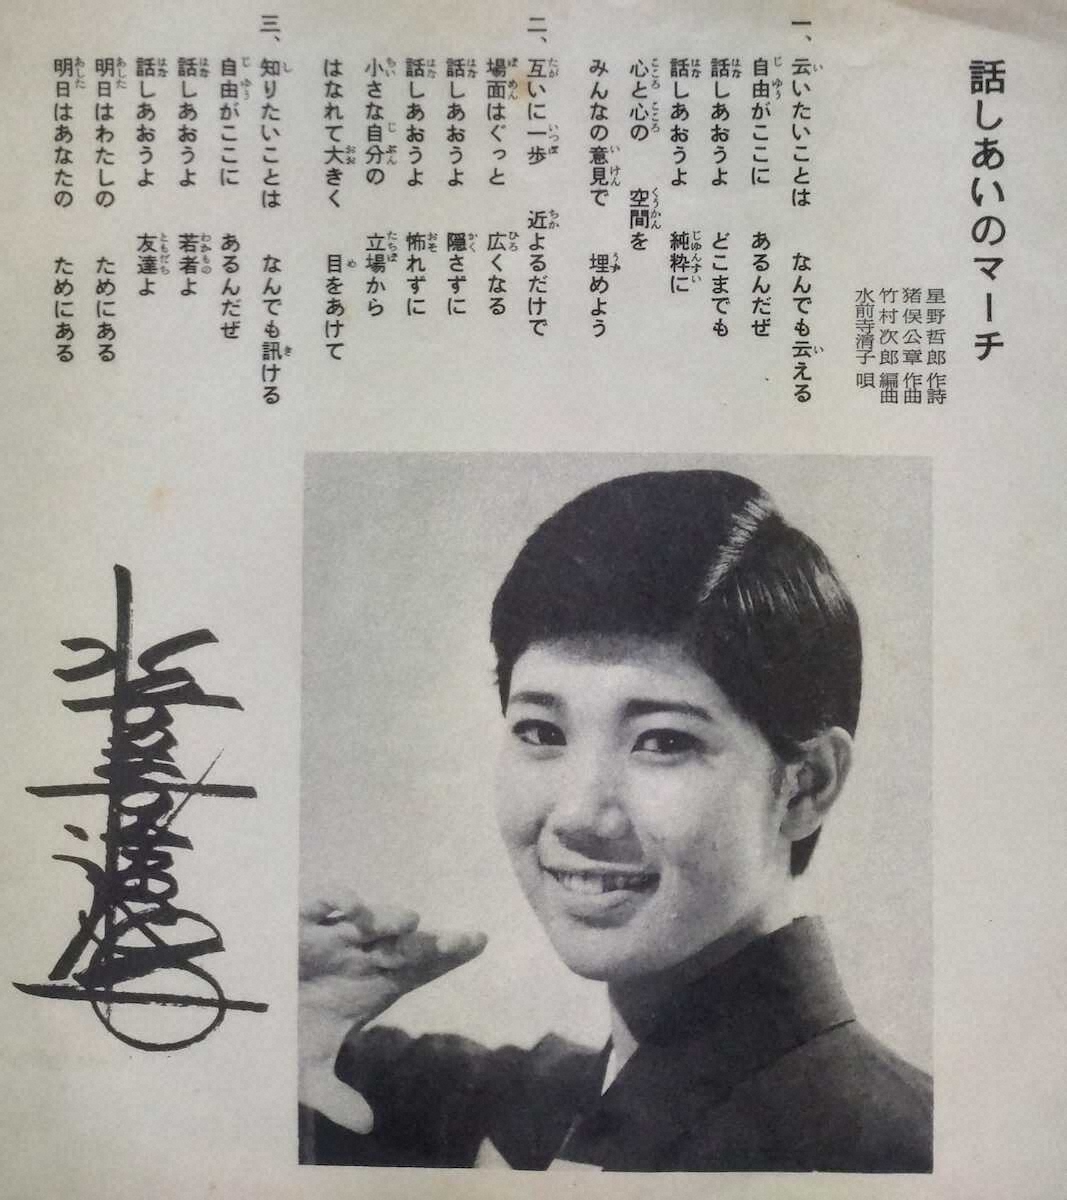 話しあいのマーチ
星野哲郎 作詩
猪俣公章 作曲
竹村次郎 編曲
水前寺清子 唄
一、云いたいことは なんでも云える
自由がここに あるんだぜ
話しあおうよ どこまでも
話しあおうよ 純粋に
心と心の 空間を
みんなの意見で 埋めよう
二、互いに一歩 近よるだけで
場面はぐっと 広くなる
話しあおうよ 隠さずに
話しあおうよ 怖れずに
小さな自分の 立場から
はなれて大きく 目をあけて
三、知りたいことは なんでも訊ける
自由がここに あるんだぜ
話しあおうよ 若者よ
話しあおうよ 友達よ
明日はわたしの ためにある
明日はあなたの ためにある